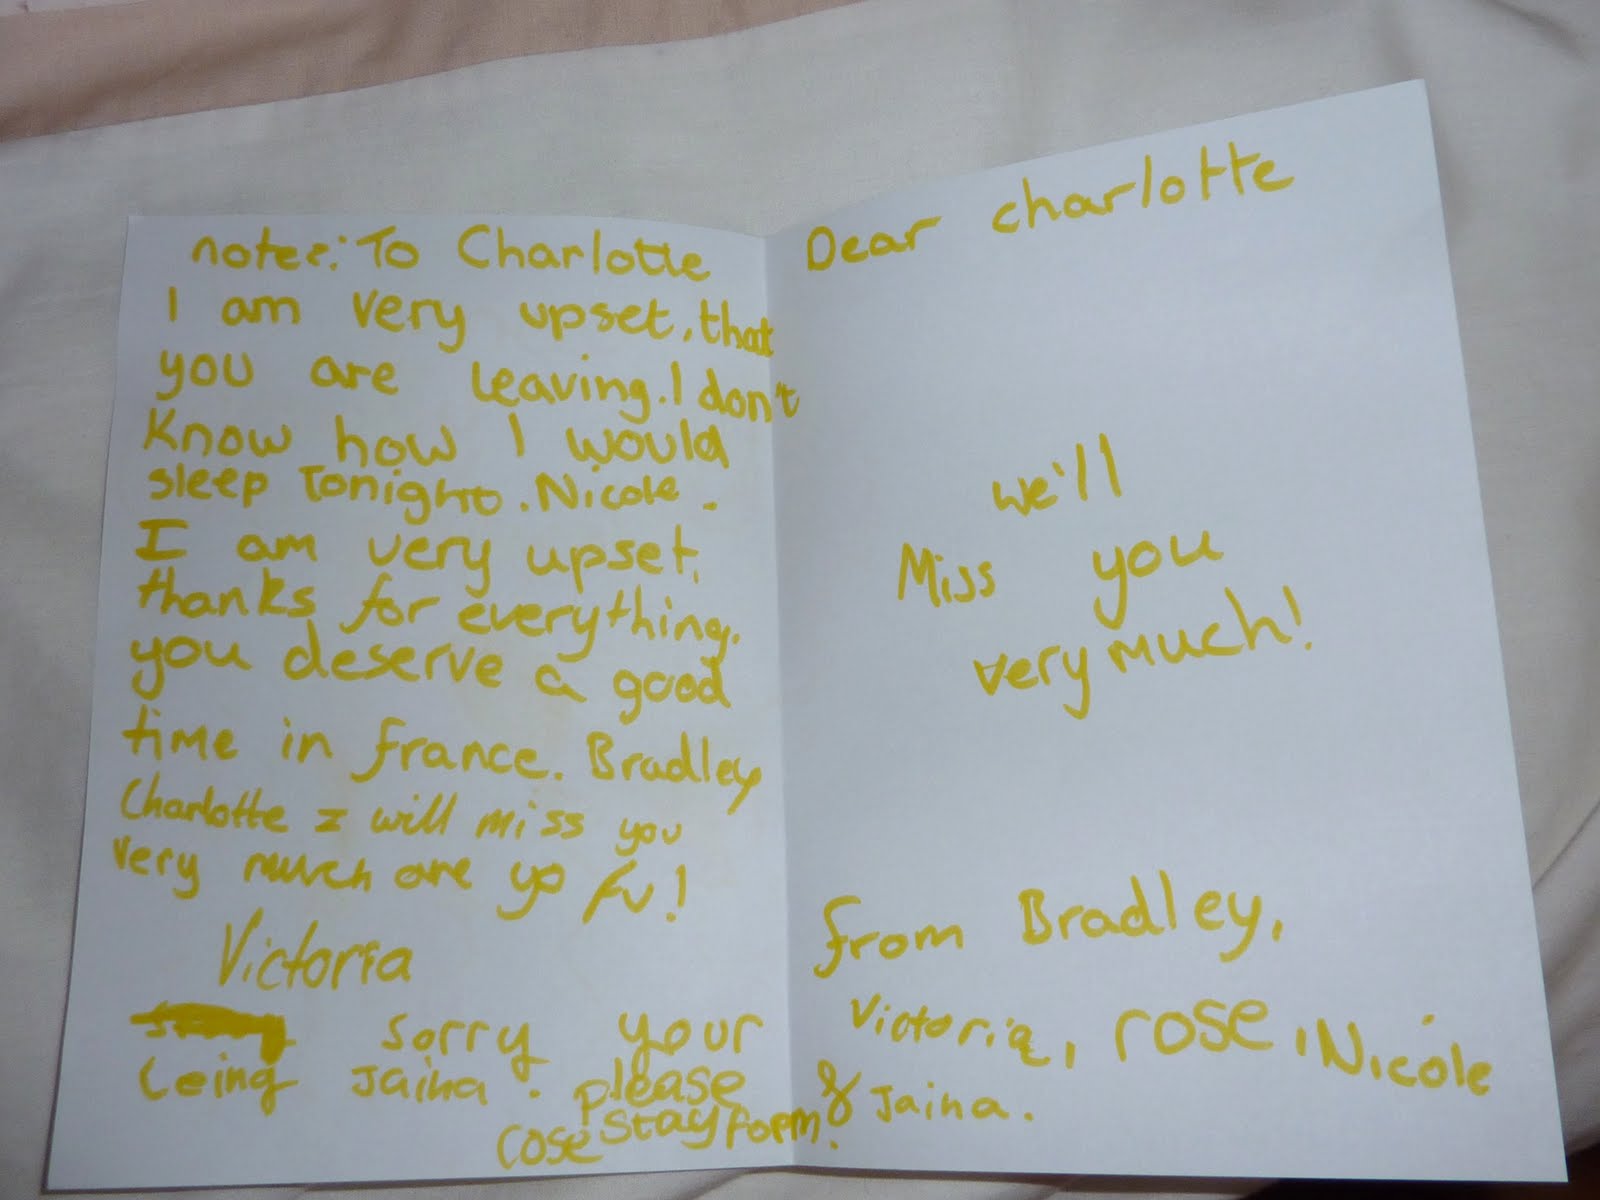 notes: To Charlotte
I am very upset, that
you are leaving. I don't
Know how I would
sleep Tonight. Nicole.
I am very upset,
thanks for everything,
you deserve a good
time in france. Bradley
Charlotte I will miss you
very much are yo fu!
Victoria
sorry your
leing Jaina. please
stay form
cose
Dear charlotte
we'll
Miss you
very much!
from Bradley,
Victoria, rose, Nicole
& Jaina.